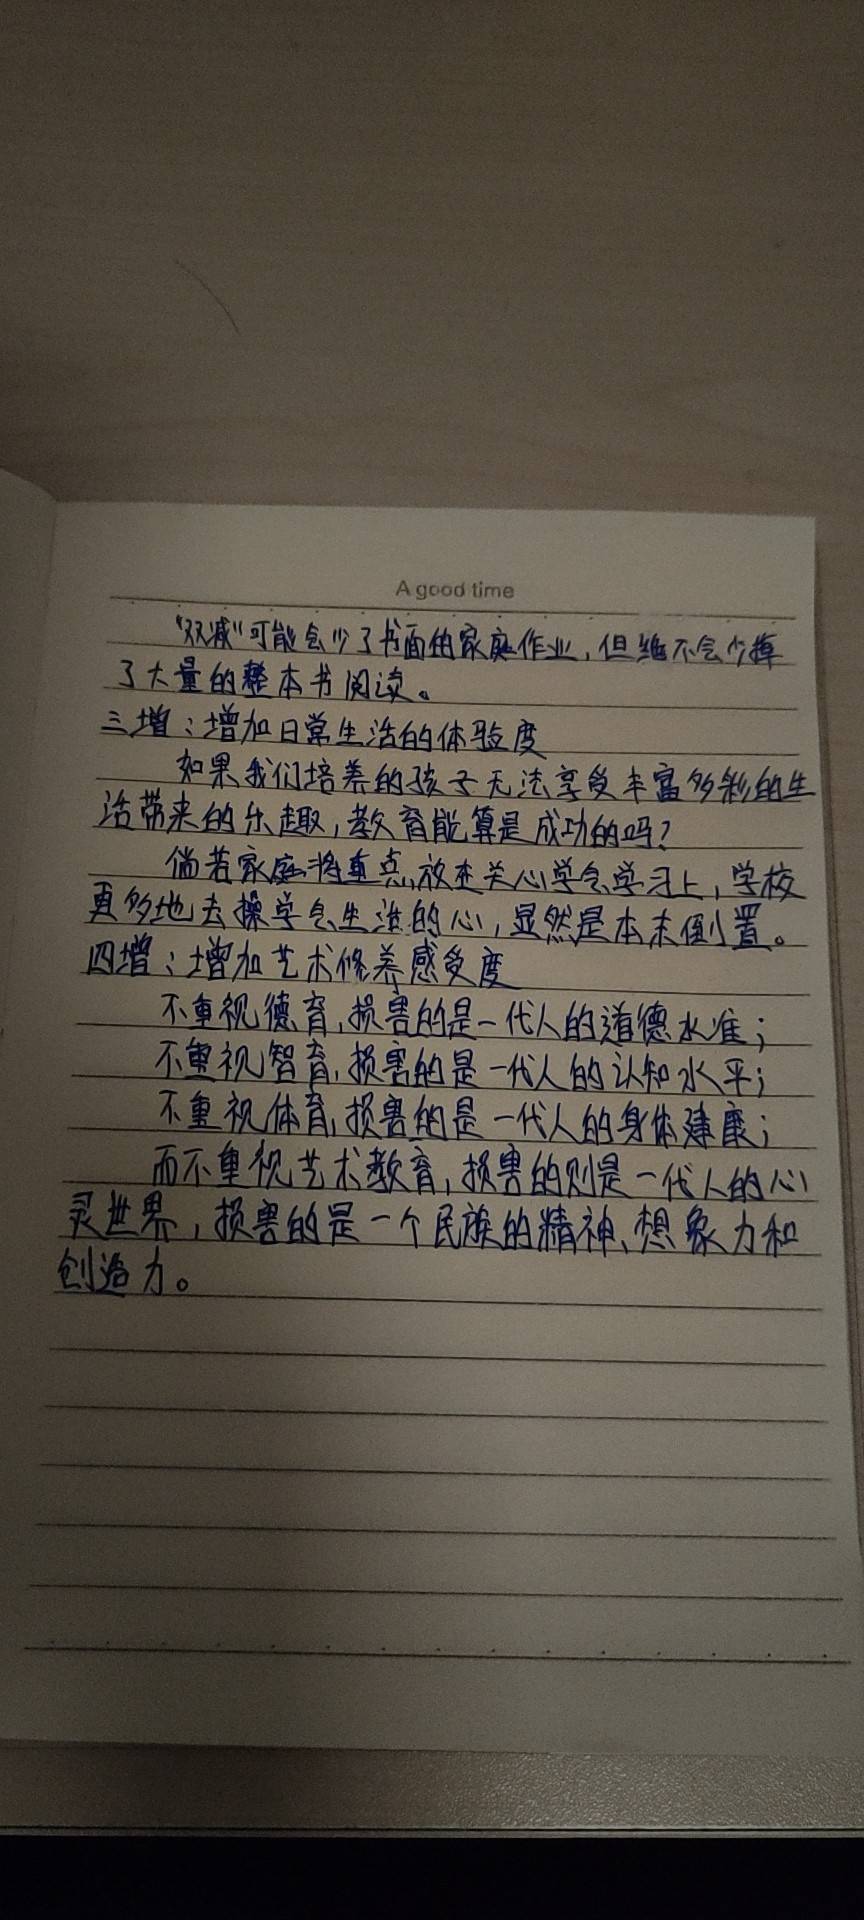 A good time
"双减"可能会少了书面的家庭作业,但绝不会少掉
了大量的整本书阅读。
三增:增加日常生活的体验度
如果我们培养的孩子无法享受丰富多彩的生
活带来的乐趣,教育能算是成功的吗?
倘若家庭将重点放在关心学习上,学校
更多地去操学生生活的心,显然是本末倒置。
四增:增加艺术修养感受度
不重视德育,损害的是一代人的道德水准;
不重视智育,损害的是一代人的认知水平;
不重视体育,损害的是一代人的身体健康;
而不重视艺术教育,损害的则是一代人的心
灵世界,损害的是一个民族的精神、想象力和
创造力。